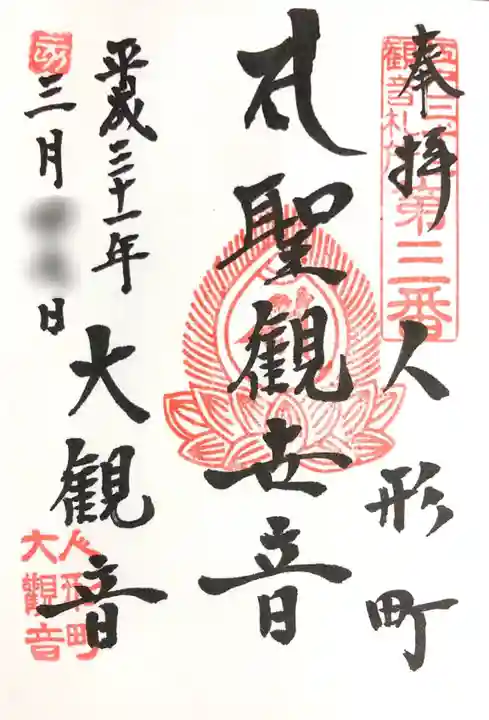 奉拝
人形町
第三番
聖観世音
平成三十一年
三月
日
大観音
人形町
大観音